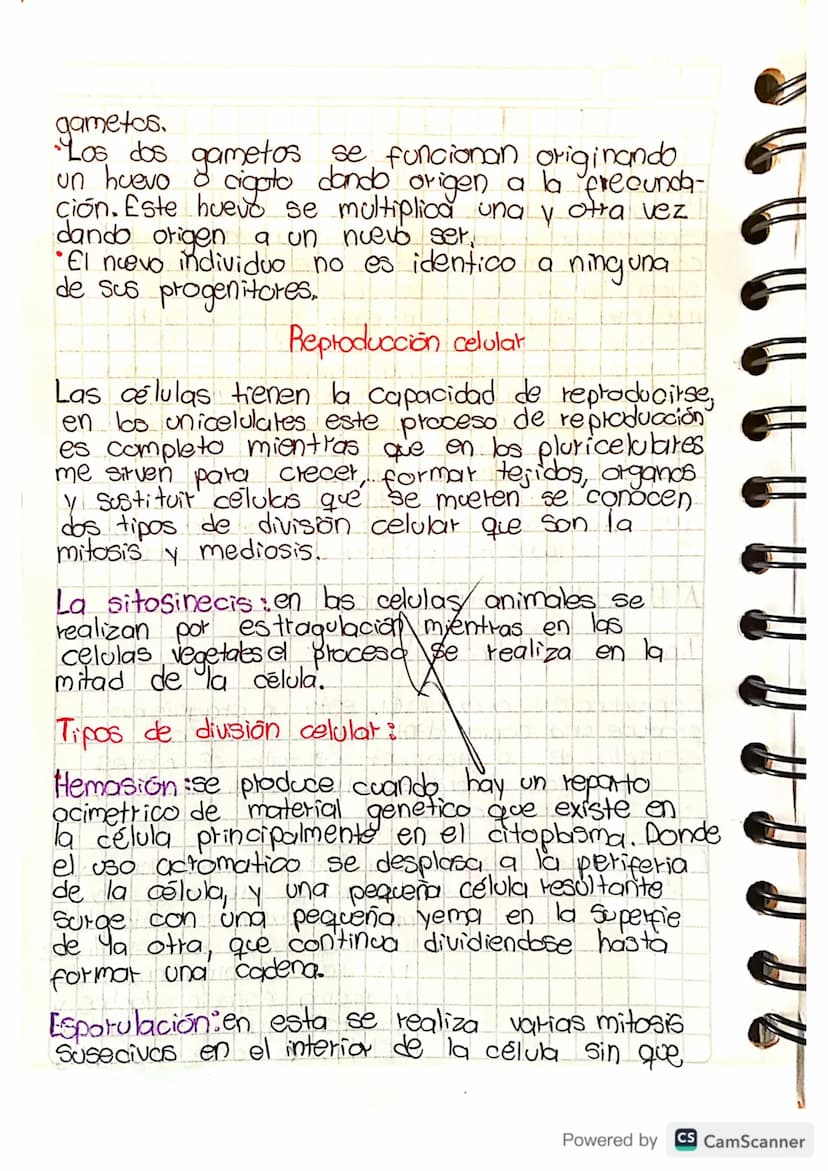 gametos.
•Los dos gametos se funcionan originando
un huevo o cigoto dando origen a la frecunda-
ción. Este huevo se multiplica una y otra vez
dando origen a un nuevo ser.
•El nuevo individuo no es identico a ninguna
de sus progenitores.
Reproducción celular
Las células tienen la capacidad de reproducirse,
en los unicelulares este proceso de reproducción
es completo mientras que en los pluricelulares
me sirven para crecer, formar tejidos, organos
y sustituir células que se mueren se conocen
dos tipos de división celular que son la
mitosis y mediosis.
La sitosinecis: en las celulas animales se
realizan por estragulación mientras en las
celulas vegetales el proceso se realiza en la
mitad de la célula.
Tipos de división celular:
Hemasión: se produce cuando hay un reparto
acimetrico de material genetico que existe en
la célula principalmente en el citoplasma. Donde
el uso acromatico se desplasa a la periferia
de la célula, y una pequeña célula resultante
surge con una pequeña yema en la superfie
de la otra, que continua dividiendose hasta
formar una cadena.
Esporulación: en esta se realiza varias mitosis
susecivas en el interior de la célula sin que
Powered by CS CamScanner